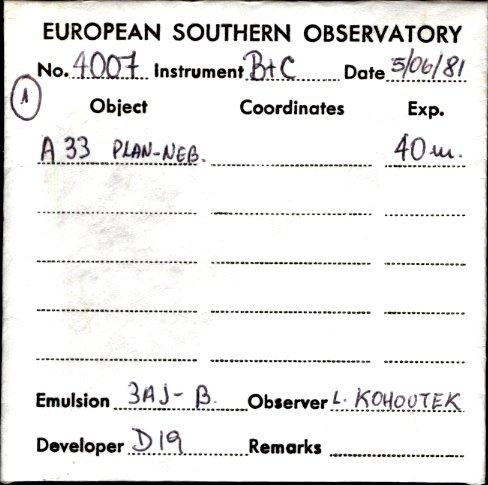 EUROPEAN SOUTHERN OBSERVATORY
No. 4007 Instrument B+C Date 5/06/81
1
Object Coordinates Exp.
A 33 PLAN-NEB. 40 m.
Emulsion 3AJ-B. Observer L. KOHOUTEK
Developer D19 Remarks